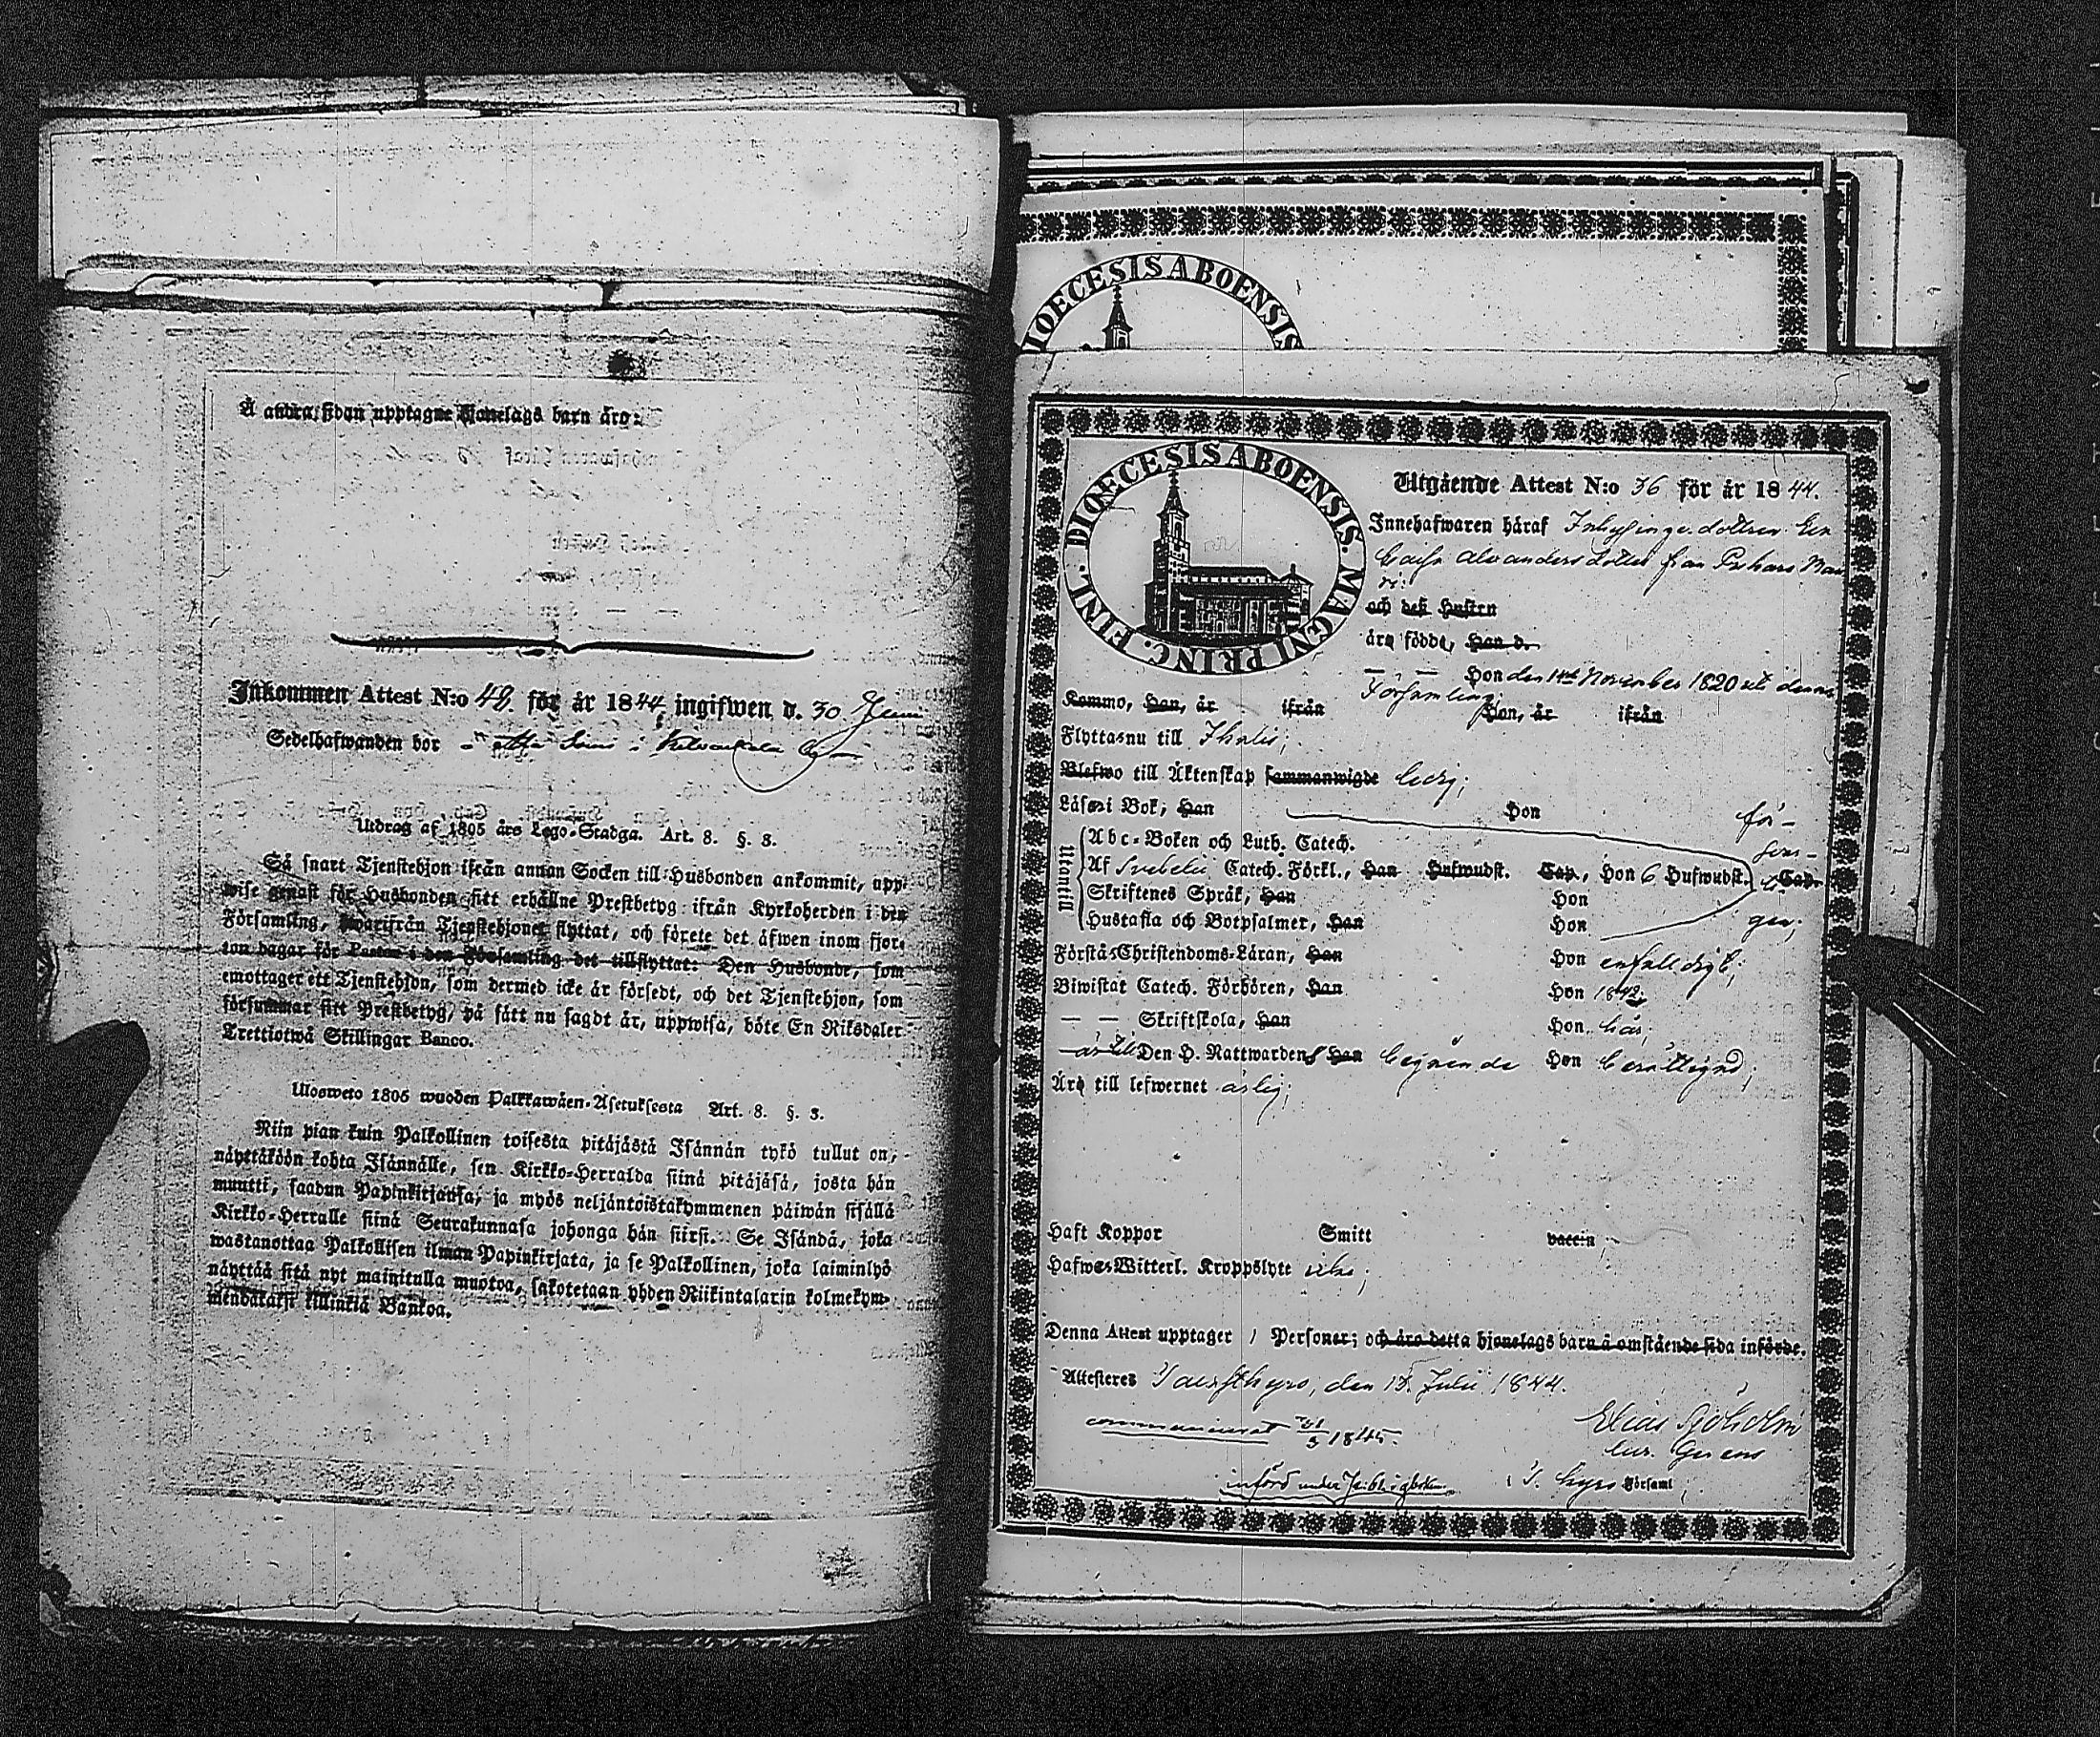 Å andra sidan upptagne Hjonelags barn äro:
Inkommen Attest N:o 49. för år 1844, ingifwen d. 30 Juni
Sedelhafwanden bor
Utdrag af 1805 års Lego-Stadga. Art. 8. §. 3.
Så snart Tjenstehjon ifrån annan Socken till Husbonden ankommit, upp-
wise genast för Husbonden sitt erhållne Prestbetyg ifrån Kyrkoherden i den
Församling, hwarifrån Tjenstehjonet flyttat, och förete det äfwen inom fjor-
ton dagar för Pastor i den Församling det tillflyttat: Den Husbonde, som
emottager ett Tjenstehjon, som dermed icke är försedt, och det Tjenstehjon, som
försummar sitt Prestbetyg, på sätt nu sagdt är, uppwisa, böte En Riksdaler
Trettiotwå Skillingar Banco.
Ulosweto 1805 wuoden Palkkawäen-Asetuksesta Art. 8. §. 3.
Niin pian kuin Palkollinen toisesta pitäjästä Isännän tykö tullut on,
näyttäköön kohta Isännälle, sen Kirkko-Herralda siinä pitäjäsä, josta hän
muutti, saadun Papinkirjansa, ja myös neljäntoistakymmenen päiwän sisällä
Kirkko-Herralle siinä Seurakunnasa johonga hän siirsi. Se Isändä, joka
wastanottaa Palkollisen ilman Papinkirjata, ja se Palkollinen, joka laiminlyö
näyttää sitä nyt mainitulla muotoa, sakotetaan yhden Riikintalarin kolmekym-
mendäkaksi killinkiä Bankoa.
DIOECESIS ABOENSIS
DIOECESIS ABOENSIS. MAGNI PRINC. FINL.
Utgående Attest N:o 36 för år 1844.
Innehafwaren häraf Inhysinge dottren
Alexandersdotter från
och deß Hustru
äro födde, Han d.
— — Hon den 14de November 1820 uti denna
Församling;
Kommo, Han, år ifrån Hon, år ifrån
Flyttas nu till Ikalis;
Blefwo till Äktenskap sammanwigde ledig;
Läser i Bok, Han Hon för-
Utantill
Abc-Boken och Luth. Catech.
Af Svebelii Catech. Förkl., Han Hufwudst. Cap., Hon 6 Hufwudst. Cap.
Skriftenes Språk, Han Hon
Hustafla och Botpsalmer, Han Hon
Förstå Christendoms-Läran, Han Hon enfaldigt;
Biwistat Catech. Förhören, Han Hon 1842;
— — Skriftskola, Han Hon här;
är till Den H. Nattwarden Han begående Hon berättigad;
Äro till lefwernet ärlig;
Haft Koppor Smitt vaccin
Hafwer Witterl. Kroppslyte icke;
Denna Attest upptager 1 Personer; och äro detta hjonelags barn å omstående sida införde.
Attesteres Tavastkyro, den 15 Julii 1844.
Elias Sjöholm
communicerat 21/3 1845.
cur. Gerens
införd under
i T. Kyro Församl.